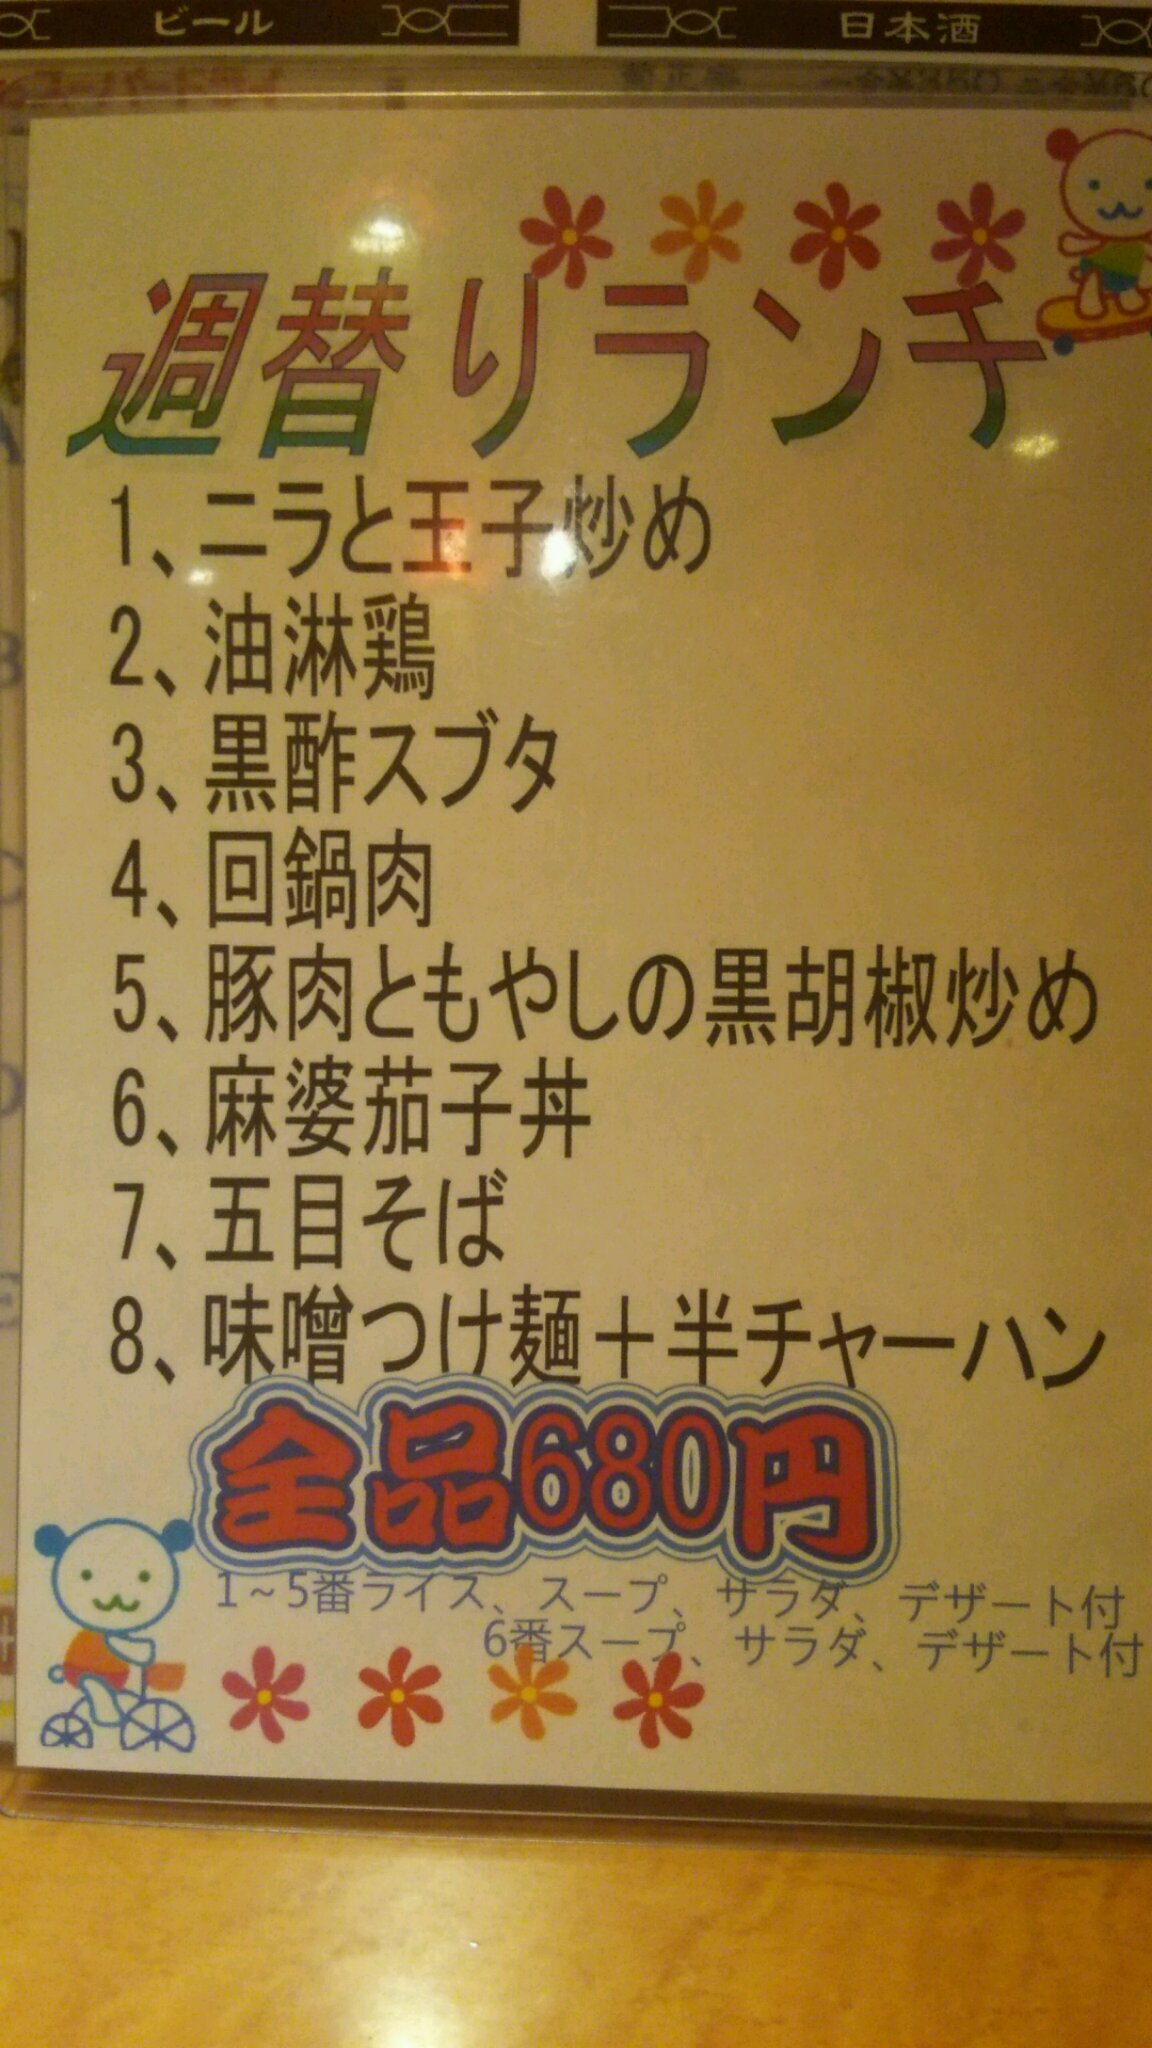 ビール 日本酒
週替りランチ
1、ニラと玉子炒め
2、油淋鶏
3、黒酢スブタ
4、回鍋肉
5、豚肉ともやしの黒胡椒炒め
6、麻婆茄子丼
7、五目そば
8、味噌つけ麺＋半チャーハン
全品680円
1～5番ライス、スープ、サラダ、デザート付
6番スープ、サラダ、デザート付